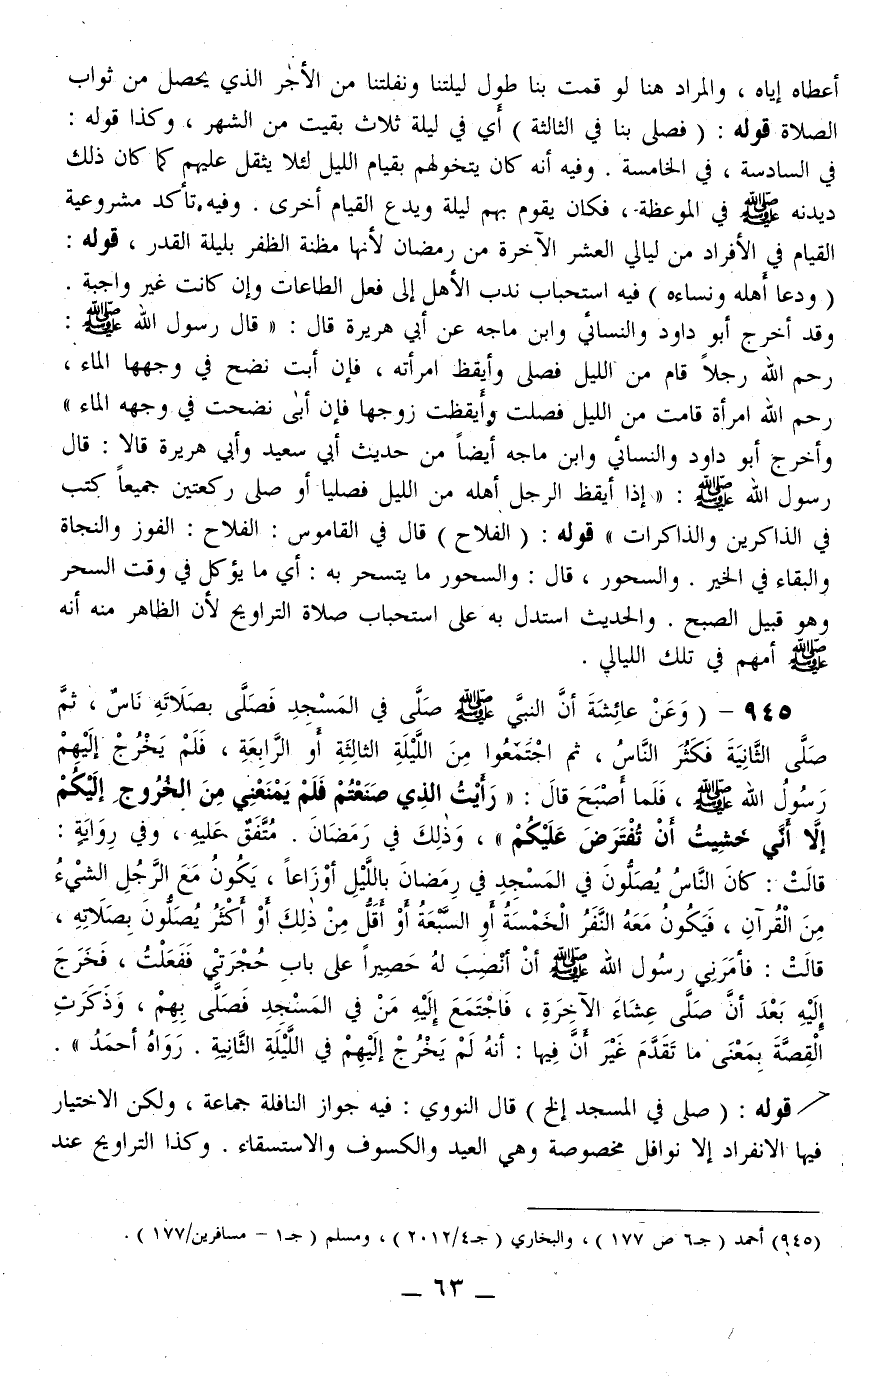 أعطاه إياه ، والمراد هنا لو قمت بنا طول ليلتنا ونفلتنا من الأجر الذي يحصل من ثواب
الصلاة قوله : ( فصلى بنا في الثالثة ) أي في ليلة ثلاث بقيت من الشهر ، وكذا قوله :
في السادسة ، في الخامسة . وفيه أنه كان يتخولهم بقيام الليل لئلا يثقل عليهم كما كان ذلك
ديدنه ﷺ في الموعظة ، فكان يقوم بهم ليلة ويدع القيام أخرى . وفيه تأكد مشروعية
القيام في الأفراد من ليالي العشر الآخرة من رمضان لأنها مظنة الظفر بليلة القدر ، قوله :
( ودعا أهله ونساءه ) فيه استحباب ندب الأهل إلى فعل الطاعات وإن كانت غير واجبة .
وقد أخرج أبو داود والنسائي وابن ماجه عن أبي هريرة قال : « قال رسول الله ﷺ :
رحم الله رجلاً قام من الليل فصلى وأيقظ امرأته ، فإن أبت نضح في وجهها الماء ،
رحم الله امرأة قامت من الليل فصلت وأيقظت زوجها فإن أبى نضحت في وجهه الماء »
وأخرج أبو داود والنسائي وابن ماجه أيضاً من حديث أبي سعيد وأبي هريرة قالا : قال
رسول الله ﷺ : « إذا أيقظ الرجل أهله من الليل فصليا أو صلى ركعتين جميعاً كتب
في الذاكرين والذاكرات » قوله : ( الفلاح ) قال في القاموس : الفلاح : الفوز والنجاة
والبقاء في الخير . والسحور ، قال : والسحور ما يتسحر به : أي ما يؤكل في وقت السحر
وهو قبيل الصبح . والحديث استدل به على استحباب صلاة التراويح لأن الظاهر منه أنه
ﷺ أمهم في تلك الليالي .
٩٤٥ – ( وَعَنْ عائِشَةَ أنَّ النبيَّ ﷺ صَلَّى في المَسْجِدِ فَصَلَّى بِصَلَاتَهِ نَاسٌ ، ثمَّ
صَلَّى الثَّانِيَةَ فَكَثُرَ النَّاسُ ، ثم اجْتَمَعُوا مِنَ اللَّيْلَةِ الثالِثَةِ أَو الرَّابِعَةِ ، فَلَمْ يَخْرُجْ إلَيْهِمْ
رَسُولُ الله ﷺ ، فَلَما أَصْبَحَ قالَ : « رَأَيْتُ الذي صَنَعْتُمْ فَلَمْ يَمْنَعْنِي مِنَ الخُرُوجِ إلَيْكُمْ
إلَّا أَنَّي خَشِيتُ أَنْ تُفْتَرَضَ عَلَيْكُمْ » ، وَذٰلِكَ في رَمَضَانَ . مُتَّفَقٌ عَليهِ ، وفي رِوَايَةٍ :
قالَتْ : كانَ النَّاسُ يُصَلُّونَ في المَسْجِدِ في رمَضَانَ باللَّيْلِ أوْزَاعاً ، يَكُونُ مَعَ الرَّجُلِ الشيْءُ
مِنَ الْقُرآنِ ، فَيَكُونُ مَعَهُ النَّفَرُ الْخَمْسَةُ أوِ السَّبْعَةُ أَوْ أَقَلُّ مِنْ ذٰلِكَ أَوْ أَكْثَرُ يُصَلُّونَ بِصَلاتِهِ ،
قالَتْ : فأَمَرَنِي رسُول الله ﷺ أنْ أنْصِبَ لهُ حَصِيراً على بابِ حُجْرَتِي فَفَعَلْتُ ، فَخَرَجَ
إلَيْهِ بَعْدَ أنَّ صَلَّى عِشَاءَ الآخِرَةِ ، فَاجْتَمَعَ إِلَيْهِ مَنْ في المَسْجِدِ فَصَلَّى بِهِمْ ، وَذَكَرَتِ
الْقِصَّةَ بِمَعْنَى ما تَقَدَّمَ غَيْرَ أَنَّ فِيها : أنهُ لَمْ يَخْرُجْ إلَيْهِمْ في اللَّيْلَةِ الثَّانِيَةِ . رَوَاهُ أحمَدُ » .
قوله : ( صلى في المسجد إلخ ) قال النووي : فيه جواز النافلة جماعة ، ولكن الاختيار
فيها الانفراد إلا نوافل مخصوصة وهي العيد والكسوف والاستسقاء . وكذا التراويح عند
(٩٤٥) أحمد ( جـ٦ ص ١٧٧ ) ، والبخاري ( جـ٤/٢٠١٢ ) ، ومسلم ( جـ١ – مسافرين/١٧٧ ) .
– ٦٣ –